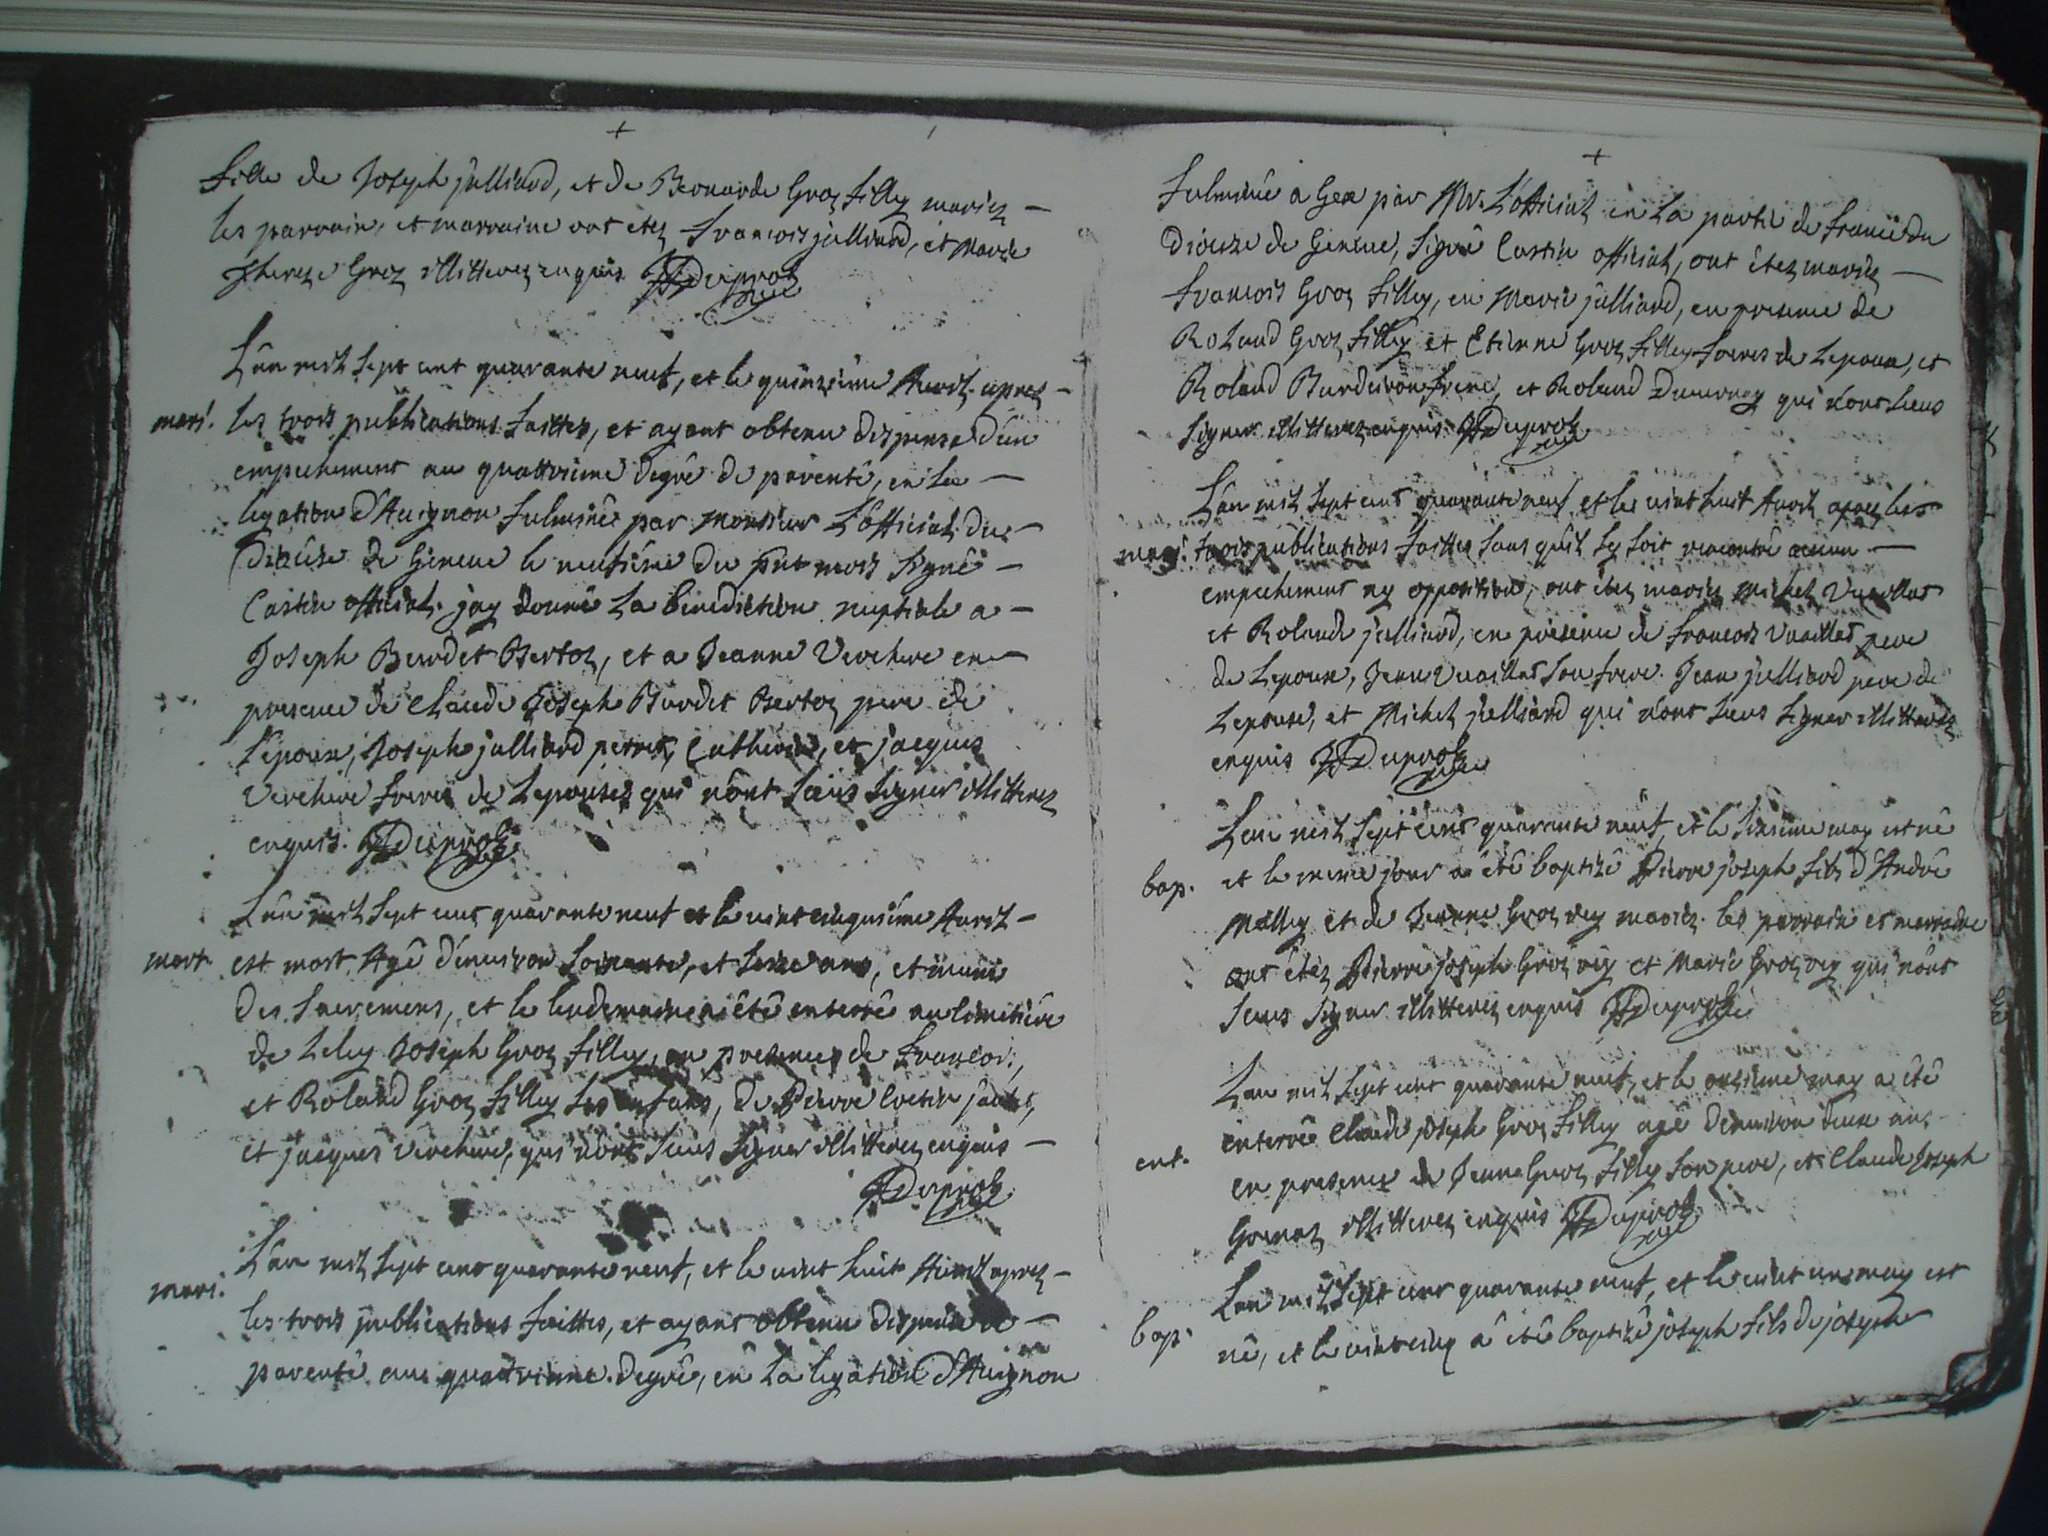 fille de Joseph julliard, et de Bernarde Groz filley mariez —
les parrain, et marraine ont etez francois julliard, et Marie
Therese Groz illitterez enquis. Duproz
L'an mil sept cent quarante neuf, et le quinzième Avril apres —
mari. les trois publications faittes, et ayant obtenu dispense d'un
empechement au quattrieme degré de parenté, en la —
legation d'Avignon fulminée par Monsieur L'official du —
diocése de Geneve le neufiéme du pñt mois signé —
Castin official. jay donné La benediction nuptiale a —
Joseph Burdet Bertoz, et a Jeanne Verchere en —
presence de Claude Joseph Burdet Bertoz pere de
l'epoux, Joseph julliard perret, Catherin, et jacques
Verchere freres de Lepouse qui n'ont sceus signer illitterez
enquis. Duproz
L'an mil sept cent quarante neuf et le vint cinquiéme Avril —
mort. est mort Agé d'environ soixante, et seize ans, et muni
des sacremens, et le lendemain a été enterré au cimetiére
de Lelex Joseph Groz filley, en presence de francois,
et Roland Groz filley ses enfans, de Pierre
et jacques Verchere, qui n'ont sceus signer illitterez enquis —
Duproz
mari. L'an mil sept cent quarante neuf, et le vint huit Avril apres —
les trois publications faittes, et ayant obtenu dispense de —
parenté au quattrieme degré, en La legation d'Avignon
fulminé a Gex par Mr. L'official en La partie de france du
Diocèze de Genéve, signé Castin official, ont étez mariez —
francois Groz filley, en Marie julliard, en presence de
Roland Groz filley et Etienne Groz filley freres de Lepoux, et
Roland frere, et Roland qui n'ont sceus
signer illitterez enquis. Duproz
L'an mil sept cent quarante neuf et le vint huit Avril apres les
mari. trois publications faittes sans qu'il sy soit rencontré aucun —
empechement ny opposition, ont étez mariez Michel Vuaillat
et Rolande julliard, en présence de francois Vuaillat pere
de Lepoux, Jean Vuaillat son frere. Jean julliard pere de
Lepouse, et Michel julliard qui n'ont sceus signer illitterez
enquis Duproz
L'an mil sept cent quarante neuf, et le sixieme may est né
bap. et le meme jour a été baptizé Pierre joseph fils d'André
Malley et de Jeanne Groz rey mariez. les parrain et marraine
ont étez Pierre joseph Groz rey et Marie Groz rey qui n'ont
sceus signer illitterez enquis Duproz
L'an mil sept cent quarante neuf, et le onzieme may a été
ent. enterré Claude joseph Groz filley agé d'environ deux ans
en presence de Jean Groz filley son pere, et Claude Joseph
illitterez enquis Duproz
L'an mil sept cent quarante neuf, et le vint un may est
bap. né, et le vint cinq a été baptizé joseph fils de joseph